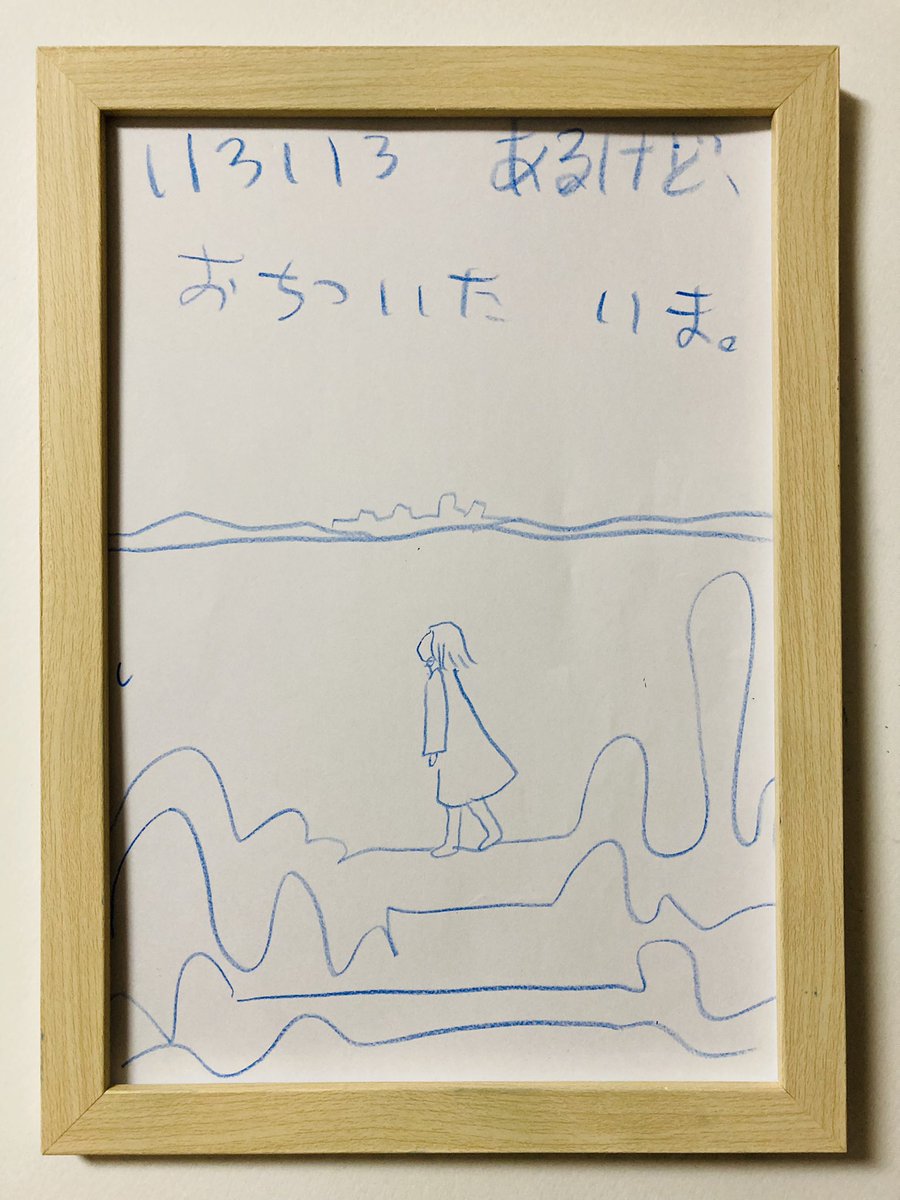 いろいろ あるけど、
おちついた いま。